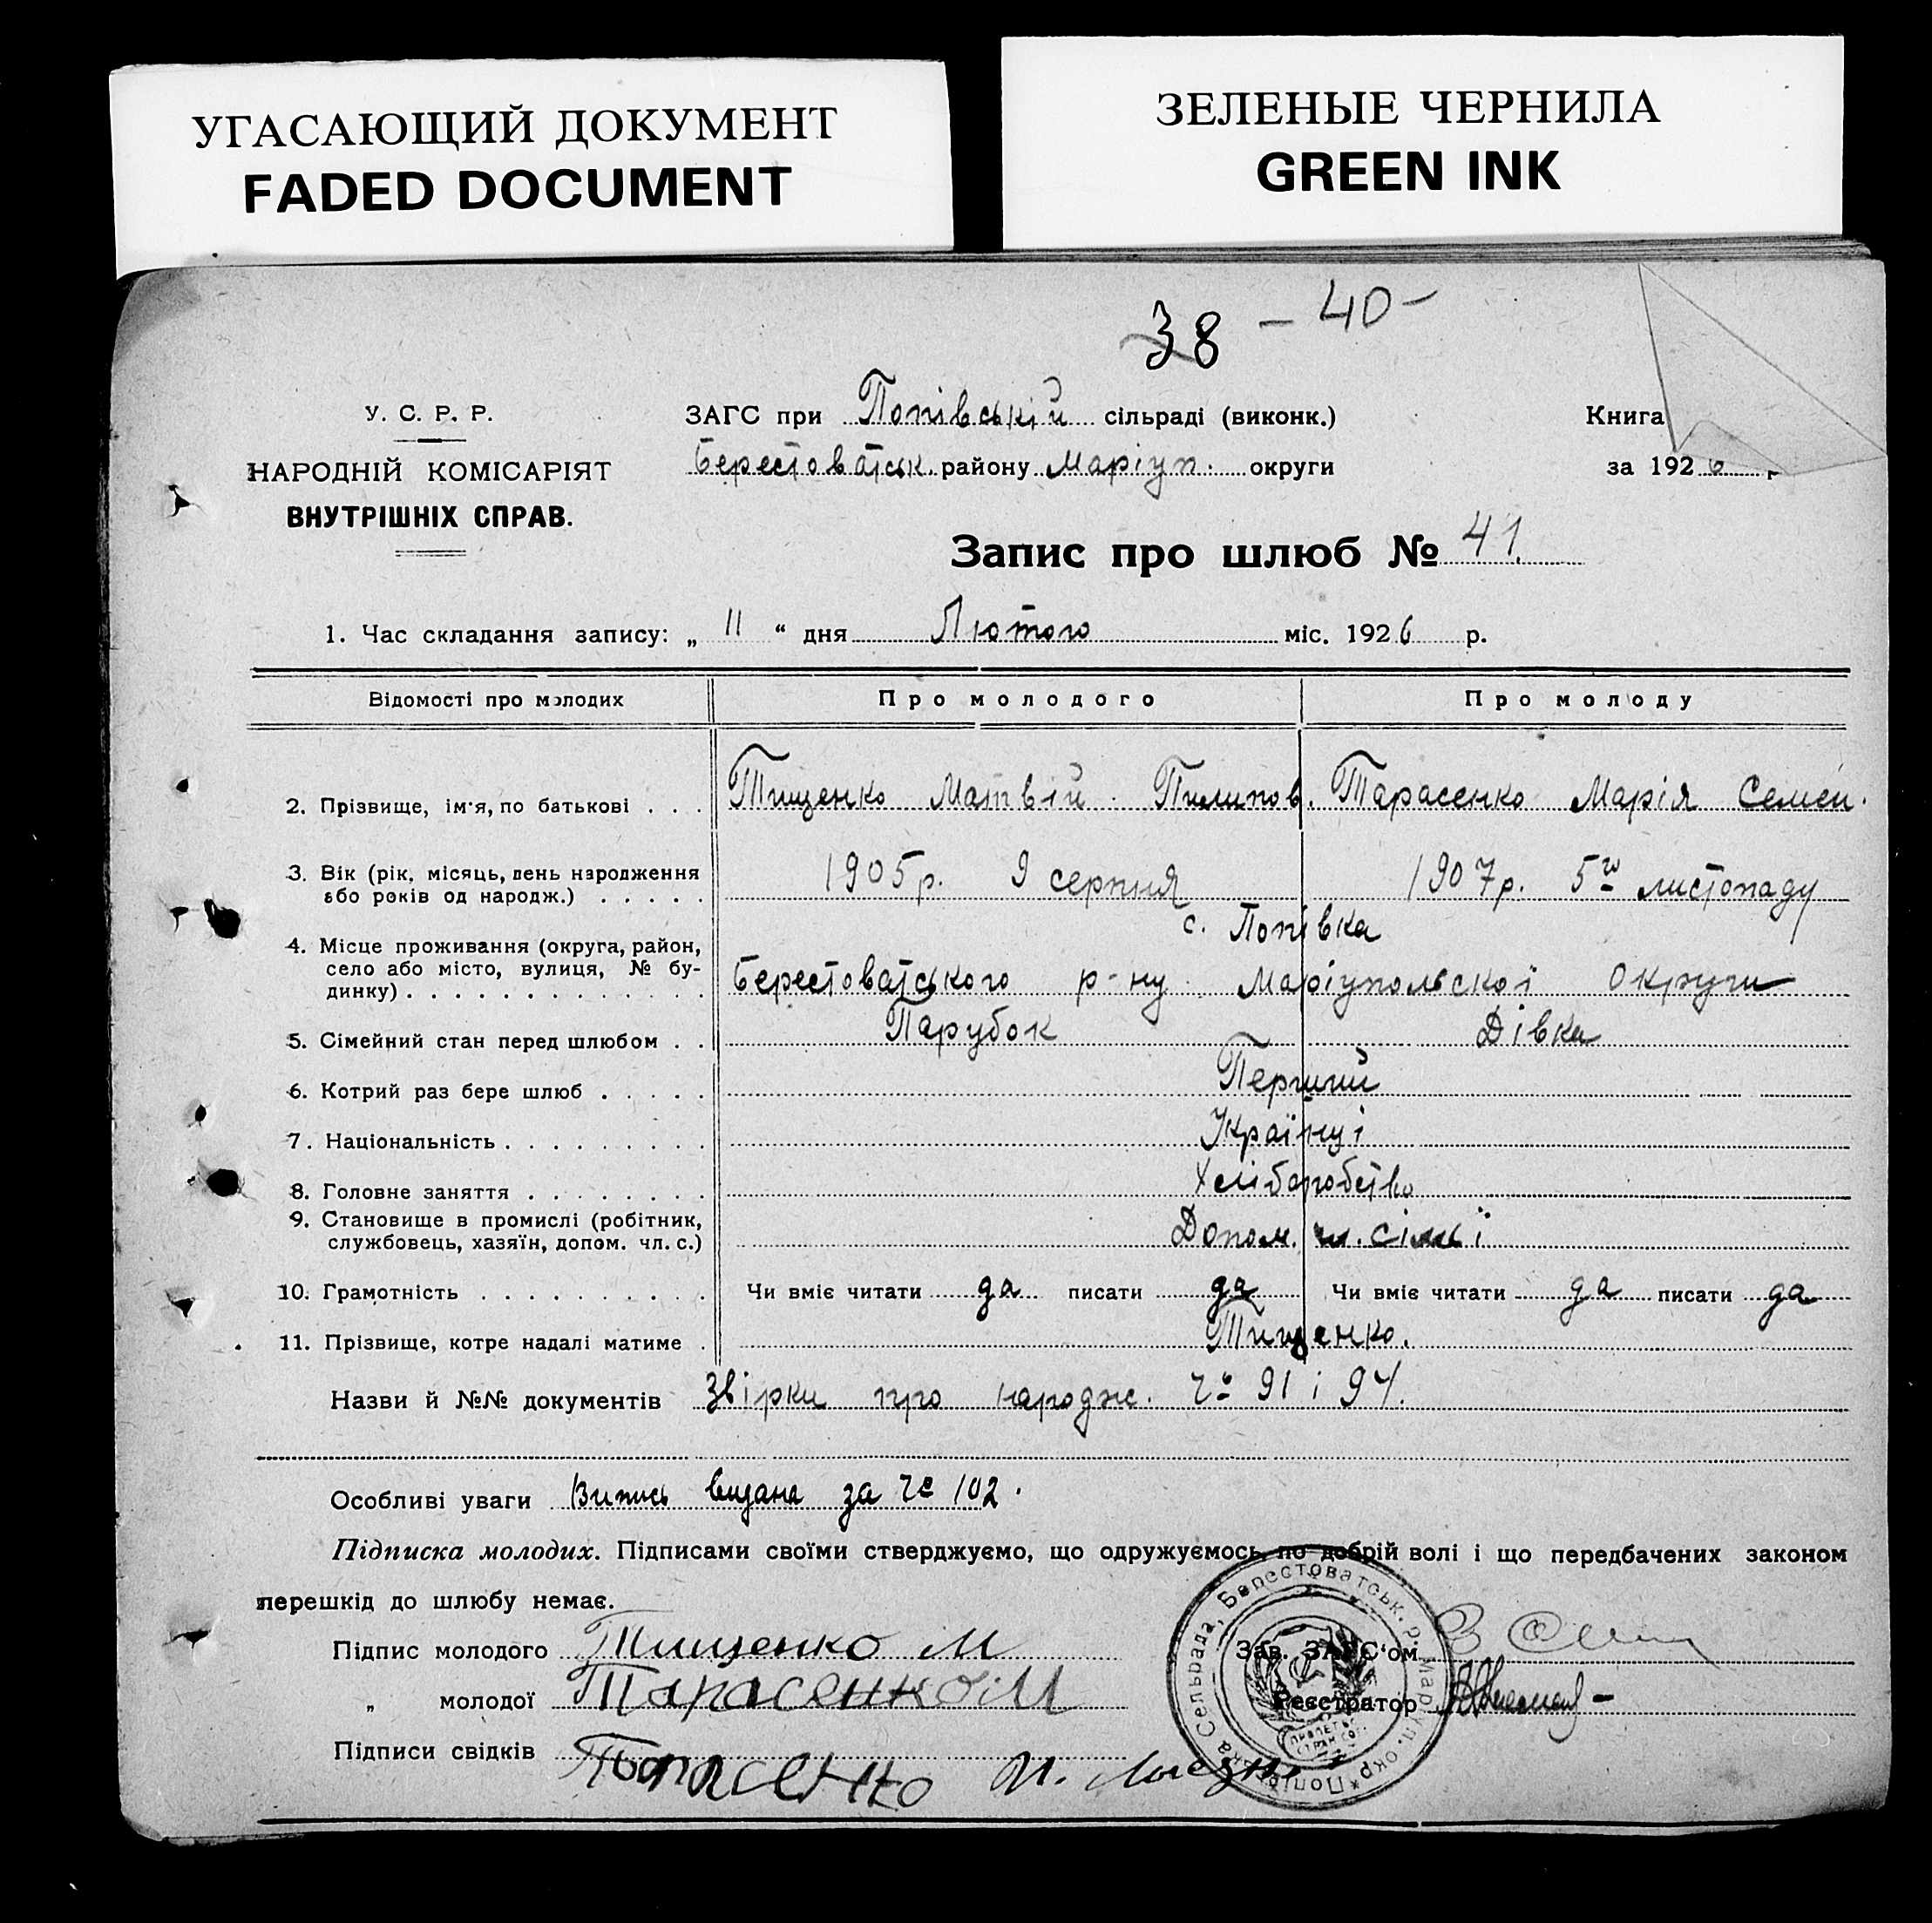 УГАСАЮЩИЙ ДОКУМЕНТ
FADED DOCUMENT
ЗЕЛЕНЫЕ ЧЕРНИЛА
GREEN INK
38 – 40 –
У. С. Р. Р.
НАРОДНІЙ КОМІСАРІЯТ
ВНУТРІШНІХ СПРАВ.
ЗАГС при Попівській сільраді (виконк.)
Берестоватськ. району Маріуп. округи
Книга
за 1926 р
Запис про шлюб № 41.
1. Час складання запису: „ 11 “ дня Лютого міс. 1926 р.
Відомості про молодих Про молодого Про молоду
2. Прізвище, ім'я, по батькові . . . Тищенко Матвій Пилипов. Тарасенко Марія Семен.
3. Вік (рік, місяць, день народження
або років од народж.) . . . . . 1905 р. 9 серпня 1907 р. 5го листопаду
с. Попівка
4. Місце проживання (округа, район,
село або місто, вулиця, № бу-
динку) . . . . . . . . . . . . . Берестоватського р-ну Маріупольскої Округи
5. Сімейний стан перед шлюбом . . Парубок Дівка
6. Котрий раз бере шлюб . . . . . Перший
7. Національність . . . . . . . . . Українці
8. Головне заняття . . . . . . . . Хліборобство
9. Становище в промислі (робітник,
службовець, хазяїн, допом. чл. с.) Допом. чл. сімьї
10. Грамотність . . . . . . . . . . Чи вміє читати да писати да Чи вміє читати да писати да
11. Прізвище, котре надалі матиме . Тищенко.
Назви й №№ документів Звірки про народж. Чо 91 і 94.
Особливі уваги Випись видана за Чо 102.
Підписка молодих. Підписами своїми стверджуємо, що одружуємось по добрій волі і що передбачених законом
перешкід до шлюбу немає.
Підпис молодого Тищенко М
„ молодої Тарасенко М
Підписи свідків Тарасенко И.
Зав. ЗАГС'ом
Реєстратор
Сельрада, Берестоватськ. р. Маріуп. окр * Попівська